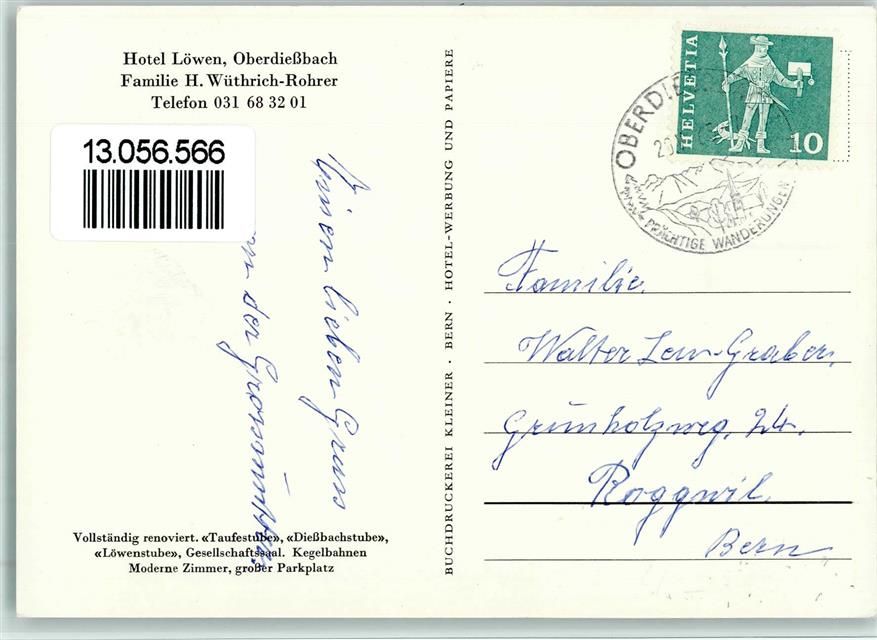 Hotel Löwen, Oberdießbach
Familie H. Wüthrich-Rohrer
Telefon 031 68 32 01
13.056.566
Einen lieben Gruss
von der Grossmutter
Vollständig renoviert. «Taufestube», «Dießbachstube»,
«Löwenstube», Gesellschaftssaal. Kegelbahnen
Moderne Zimmer, großer Parkplatz
BUCHDRUCKEREI KLEINER · BERN · HOTEL-WERBUNG UND PAPIERE
HELVETIA
10
PRÄCHTIGE WANDERUNGEN
Familie
Walter Graber,
Grünholzweg, 24.
Roggwil
Bern